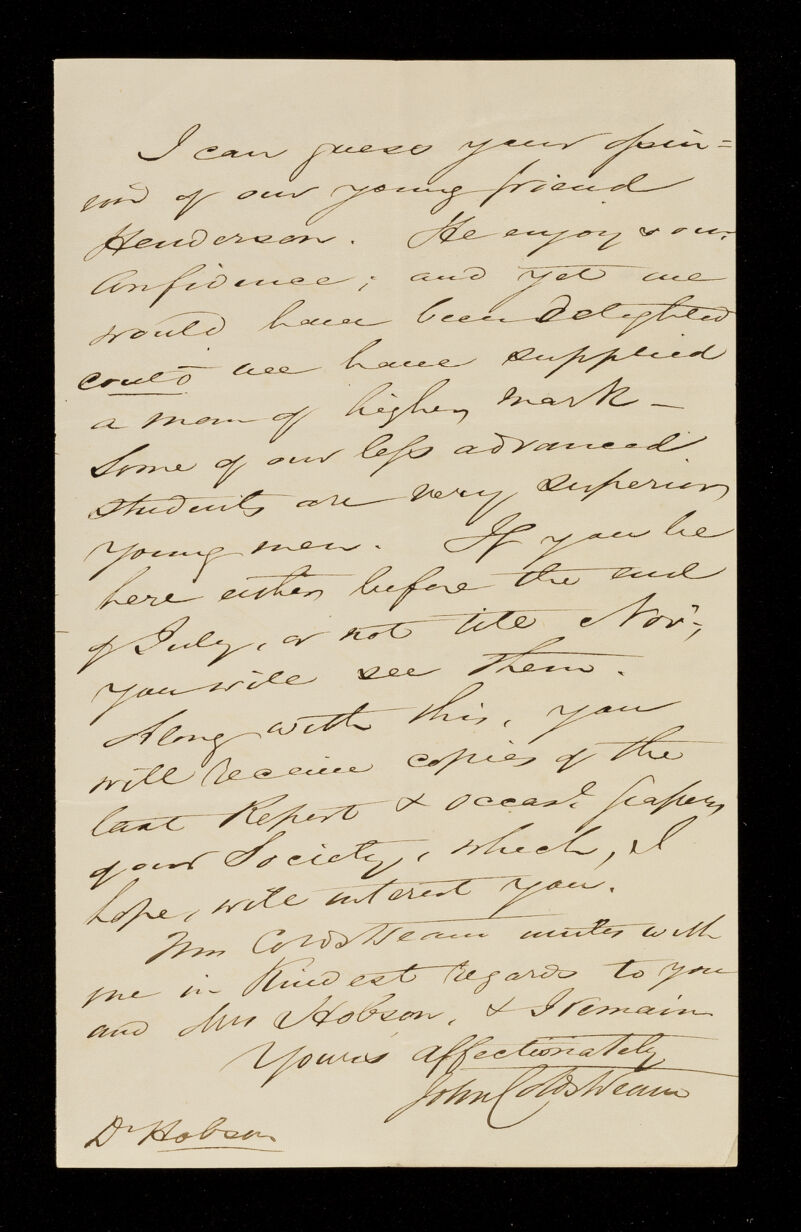 I can guess your opin=
ion of our young friend
Henderson. He enjoys our
Confidence; and yet we
would have been delighted
could we have supplied
a man of higher mark –
Some of our less advanced
students are very superior
young men. If you be
here either before the end
of July, or not till Novr,
you will see them.
Along with this, you
will receive copies of the
last Report & occasl. papers
of our Society, which, I
hope, will interest you.
Mrs Coldstream unites with
me in Kindest regards to you
and Mrs Hobson, & I remain
Yours affectionately
John Coldstream
Dr Hobson